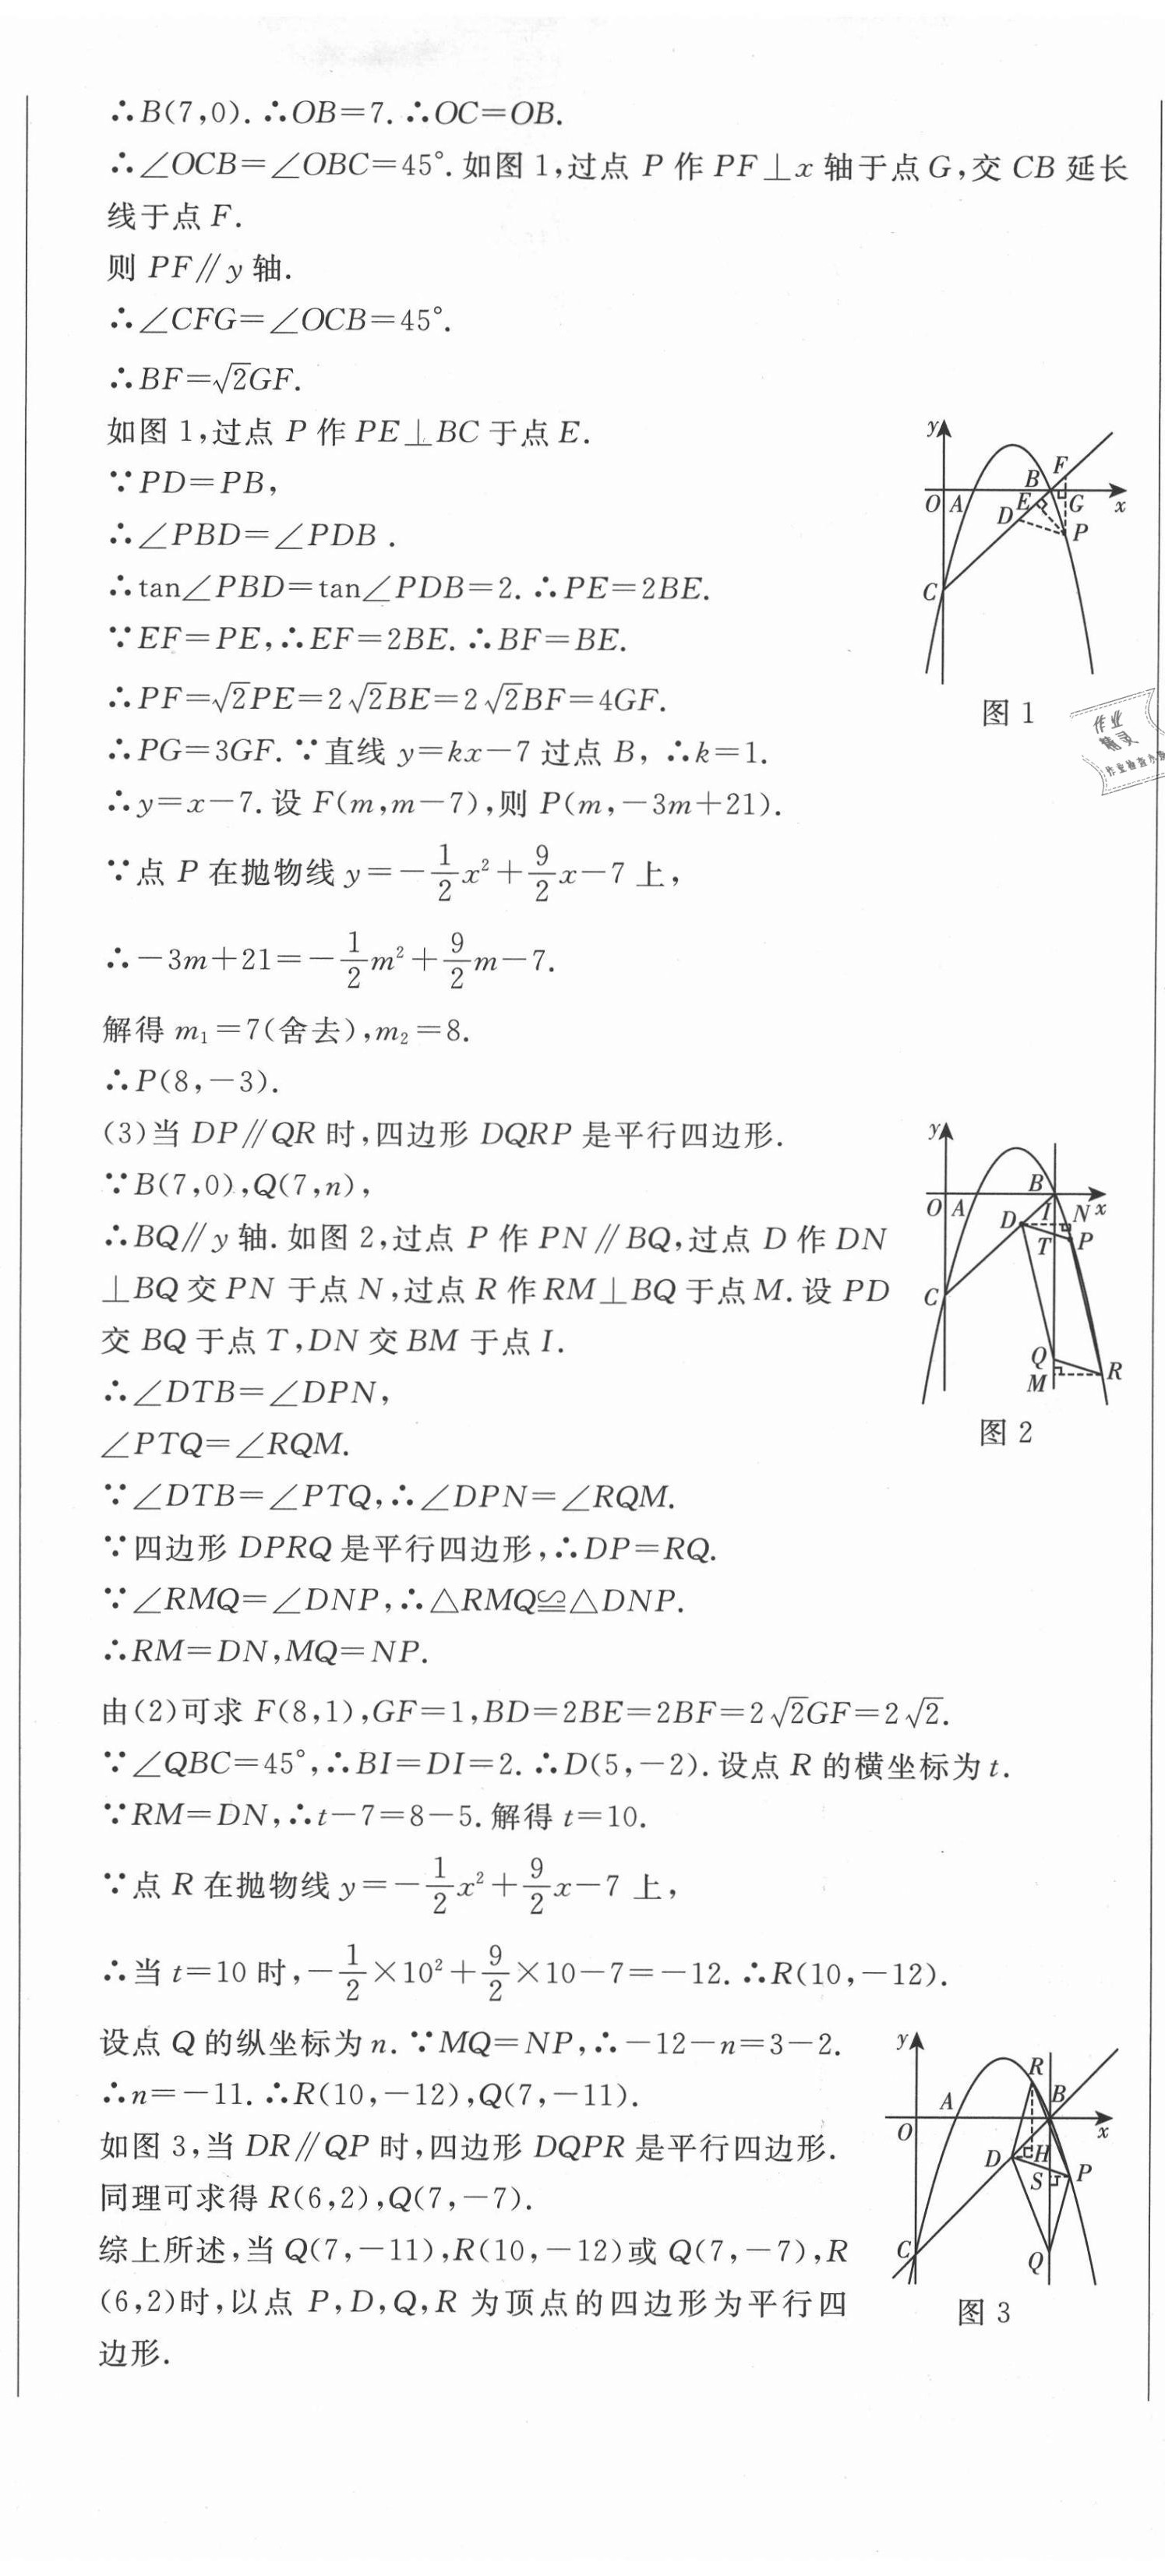 ∴B(7,0).∴OB=7.∴OC=OB.
∴∠OCB=∠OBC=45°.如图1,过点P作PF⊥x轴于点G,交CB延长
线于点F.
则PF∥y轴.
∴∠CFG=∠OCB=45°.
∴BF=√2GF.
如图1,过点P作PE⊥BC于点E.
∵PD=PB,
∴∠PBD=∠PDB.
∴tan∠PBD=tan∠PDB=2.∴PE=2BE.
∵EF=PE,∴EF=2BE.∴BF=BE.
∴PF=√2PE=2√2BE=2√2BF=4GF.
∴PG=3GF.∵直线y=kx-7过点B,∴k=1.
∴y=x-7.设F(m,m-7),则P(m,-3m+21).
∵点P在抛物线y=-1/2x²+9/2x-7上,
∴-3m+21=-1/2m²+9/2m-7.
解得m₁=7(舍去),m₂=8.
∴P(8,-3).
y
F
B
O
A
E
G
x
D
P
C
图1
作业
精灵
(3)当DP∥QR时,四边形DQRP是平行四边形.
∵B(7,0),Q(7,n),
∴BQ∥y轴.如图2,过点P作PN∥BQ,过点D作DN
⊥BQ交PN于点N,过点R作RM⊥BQ于点M.设PD
交BQ于点T,DN交BM于点I.
∴∠DTB=∠DPN,
∠PTQ=∠RQM.
∵∠DTB=∠PTQ,∴∠DPN=∠RQM.
∵四边形DPRQ是平行四边形,∴DP=RQ.
∵∠RMQ=∠DNP,∴△RMQ≌△DNP.
∴RM=DN,MQ=NP.
由(2)可求F(8,1),GF=1,BD=2BE=2BF=2√2GF=2√2.
∵∠QBC=45°,∴BI=DI=2.∴D(5,-2).设点R的横坐标为t.
∵RM=DN,∴t-7=8-5.解得t=10.
∵点R在抛物线y=-1/2x²+9/2x-7上,
∴当t=10时,-1/2×10²+9/2×10-7=-12.∴R(10,-12).
设点Q的纵坐标为n.∵MQ=NP,∴-12-n=3-2.
∴n=-11.∴R(10,-12),Q(7,-11).
y
B
O
A
D
I
N
x
T
P
C
Q
M
R
图2
如图3,当DR∥QP时,四边形DQPR是平行四边形.
同理可求得R(6,2),Q(7,-7).
综上所述,当Q(7,-11),R(10,-12)或Q(7,-7),R
(6,2)时,以点P,D,Q,R为顶点的四边形为平行四
边形.
y
R
A
B
O
x
D
H
S
P
C
Q
图3